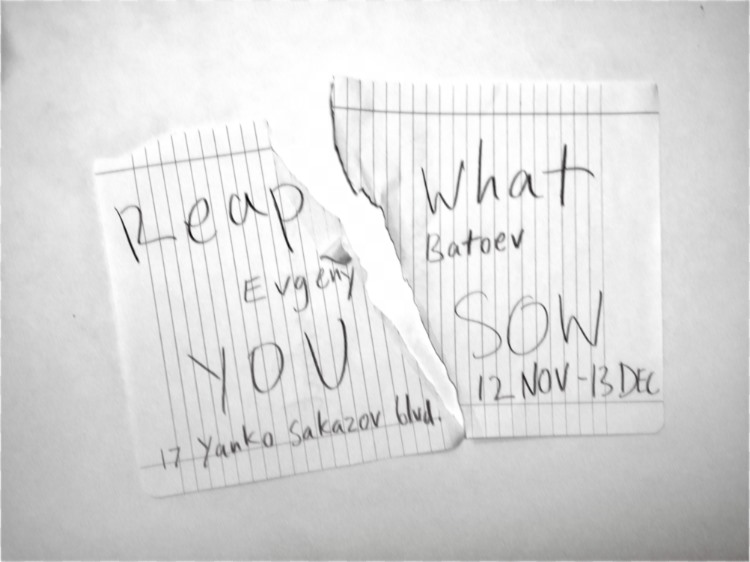 Reap What
Evgeny Batoev
YOU SOW
17 Yanko Sakazov blvd. 12 NOV - 13 DEC